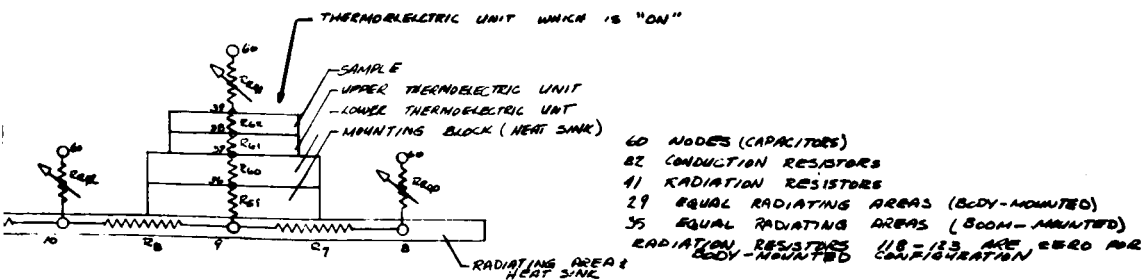 THERMOELECTRIC UNIT WHICH IS "ON"
60
SAMPLE
UPPER THERMOELECTRIC UNIT
LOWER THERMOELECTRIC UNIT
MOUNTING BLOCK (HEAT SINK)
39
R62
38
R61
37
R60
36
R59
60
60
10
R8
9
R7
8
RADIATING AREA &
HEAT SINK
60 NODES (CAPACITORS)
82 CONDUCTION RESISTORS
41 RADIATION RESISTORS
29 EQUAL RADIATING AREAS (BODY-MOUNTED)
35 EQUAL RADIATING AREAS (BOOM-MOUNTED)
RADIATION RESISTORS 118-123 ARE ZERO FOR
BODY-MOUNTED CONFIGURATION